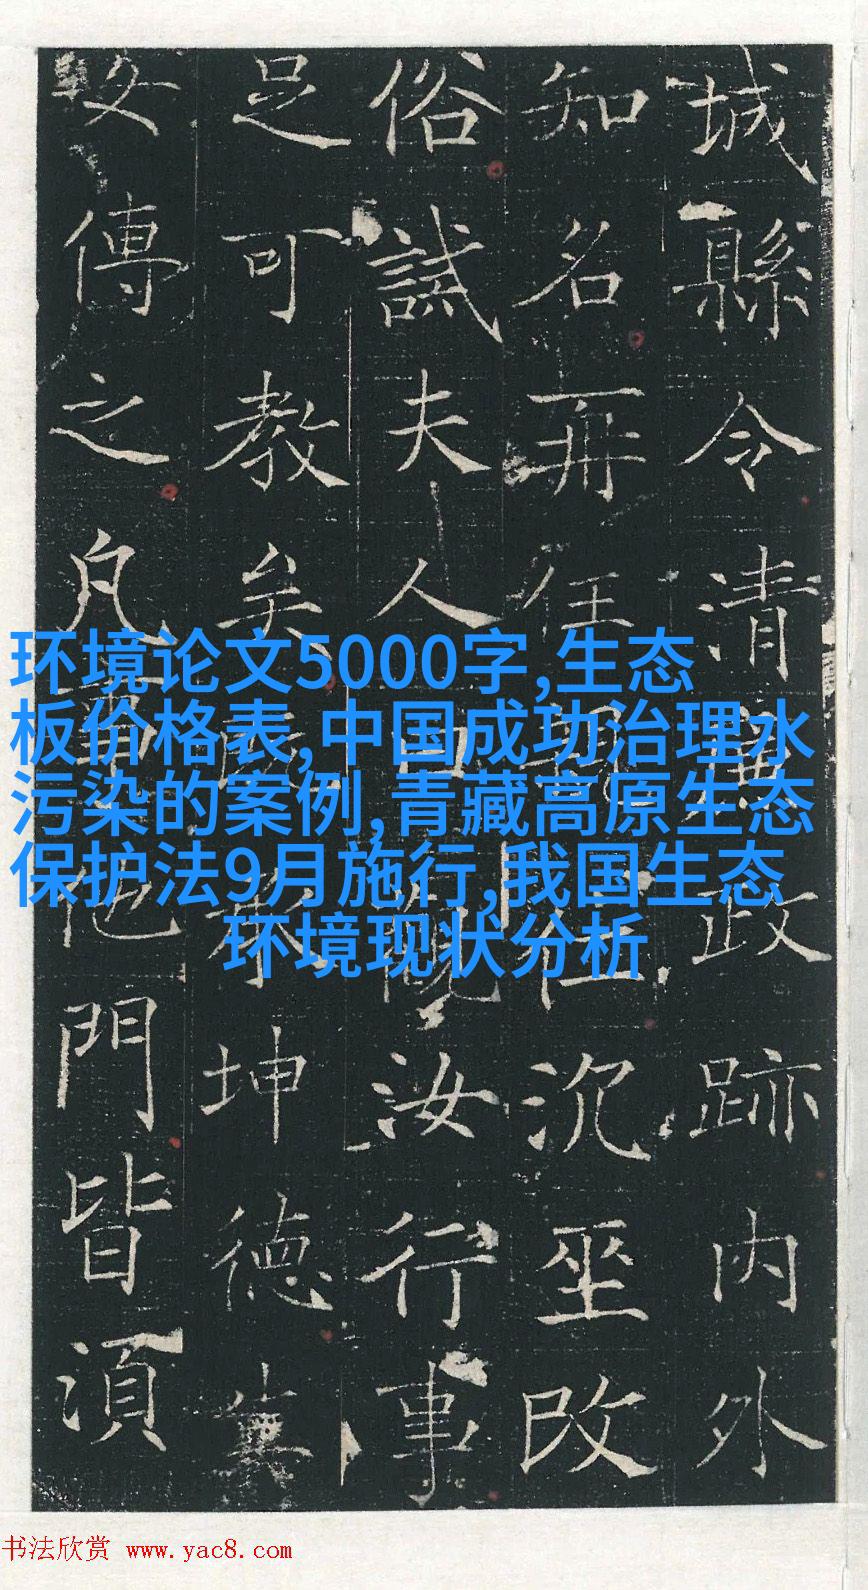 城縣令清政跡內外
知名再任沉坐改
俗誡夫人曰觀汝行事
足可教矣坤德
傳之凡他門皆須
环境论文5000字,生态
板价格表,中国成功治理水
污染的案例,青藏高原生态
保护法9月施行,我国生态
环境现状分析
书法欣赏 www.yac8.com